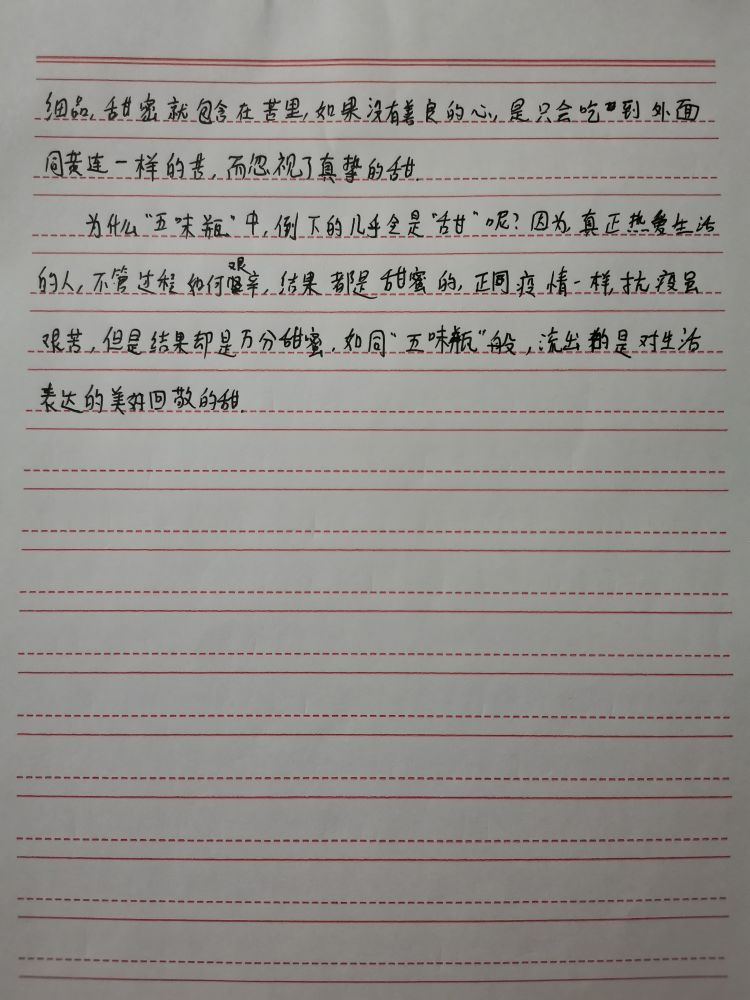 细品，甜蜜就包含在苦里，如果没有善良的心，是只会吃到外面
同黄连一样的苦，而忽视了真挚的甜.
为什么“五味瓶”中，倒下的几乎全是“甜”呢？因为，真正热爱生活
的人，不管过程如何艰辛，结果都是甜蜜的，正同疫情一样，抗疫虽
艰苦，但是结果却是万分甜蜜.如同“五味瓶”般，流出的是对生活
表达的美好回敬的甜.